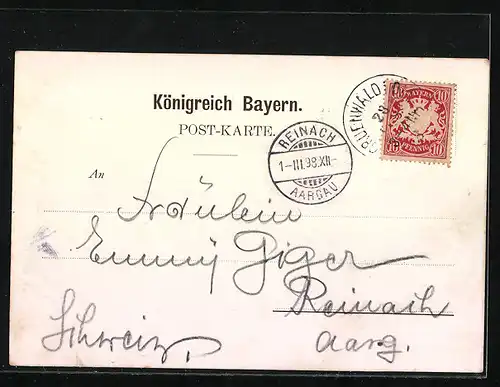 Königreich Bayern.
POST-KARTE.
An
Fräulein
Emmy Giger
Reinach
Schweiz.
Aarg.
REINACH
1-III.98.XII-
AARGAU
GRUENWALD
10 BAYERN 10
10 PFENNIG 10